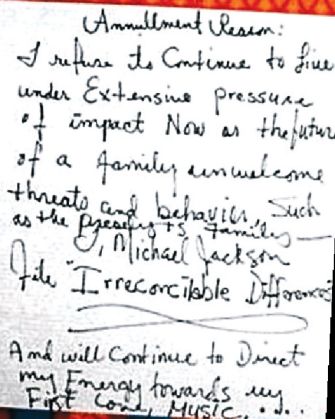 Annullment Reason:
I refuse to Continue to live
under Extensive pressure
of impact Now or the future
of a family unwelcome
threats and behavior, Such
as the Presley's family —
I, Michael Jackson
file "Irreconcibble Differences"
And will Continue to Direct
my Energy towards my
First Love, MUSIC.